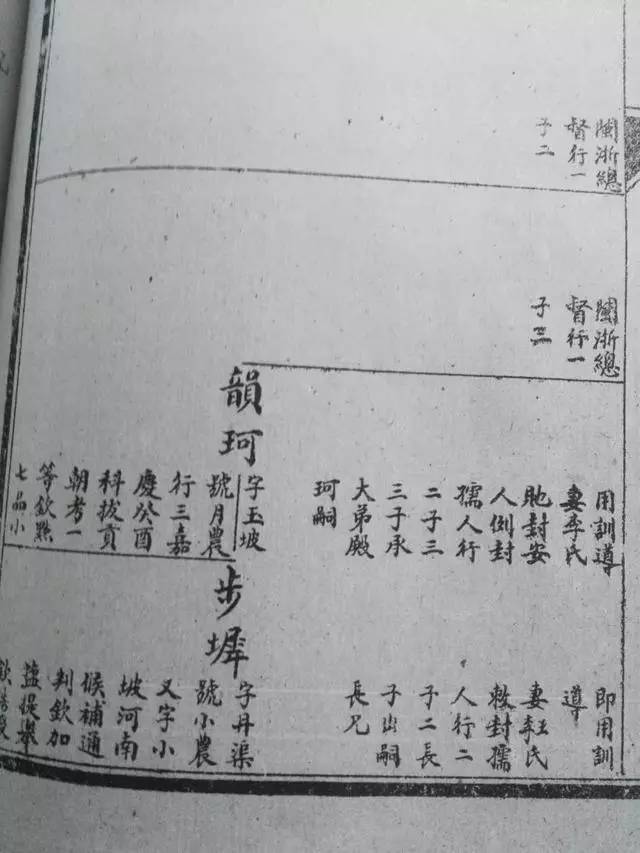 閩浙總
督行一
子二
閩浙總
督行一
子三
用訓導
妻李氏
貤封安
人例封
孺人行
二子三
三子承
大弟殿
珂嗣
韻珂
字玉坡
號月農
行三嘉
慶癸酉
科拔貢
朝考一
等欽點
七品小
即用訓
導
妻王氏
李氏
敕封孺
人行二
子二長
子出嗣
長兄
步墀
字丹渠
號小農
又字小
坡河南
候補通
判欽加
鹽提舉